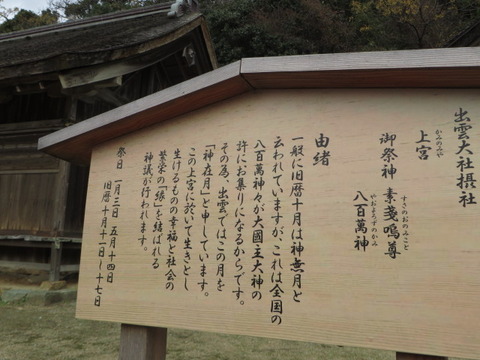 出雲大社摂社
かみのみや
上宮
すさのおのみこと
御祭神 素戔嗚尊
やおよろずのかみ
八百萬神
由緒
一般に旧暦十月は神無月と
云われていますが、これは全国の
八百萬神々が大國主大神の
許にお集りになるからです。
その為、出雲ではこの月を
「神在月」と申しています。
この上宮に於いて生きとし
生けるものの幸福と社会の
繁栄の「縁」を結ばれる
神議が行われます。
祭日 二月三日 五月十四日
旧暦 十月十一日~十七日